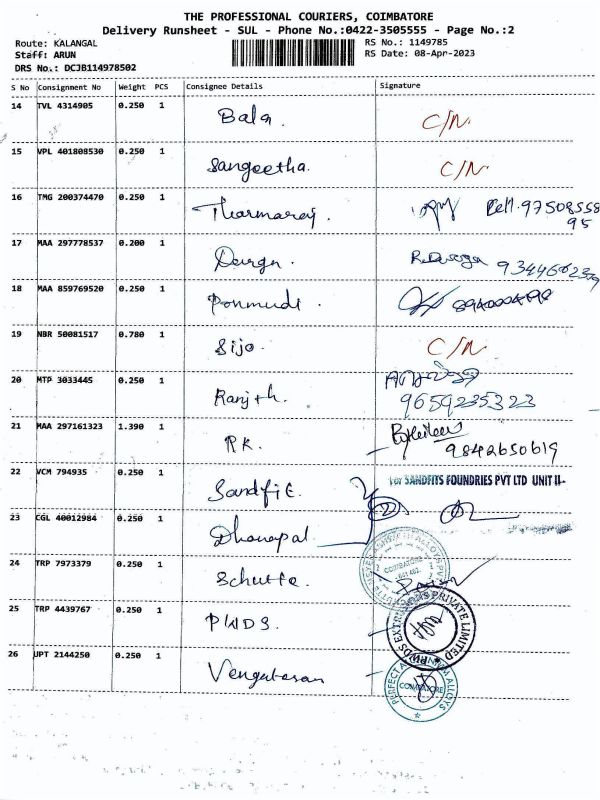 THE PROFESSIONAL COURIERS, COIMBATORE
Delivery Runsheet - SUL - Phone No.:0422-3505555 - Page No.:2
Route: KALANGAL
Staff: ARUN
DRS No.: DCJB114978502
RS No.: 1149785
RS Date: 08-Apr-2023
S No Consignment No Weight PCS Consignee Details Signature
14 TVL 4314905 0.250 1 Bala. C/N.
15 VPL 401808530 0.250 1 Sangeetha. C/N.
16 TMG 200374470 0.250 1 Tharmaraj. Cell. 97508558
95
17 MAA 297778537 0.200 1 Durga R.Durga
18 MAA 859769520 0.250 1 Ponmudi.
19 NBR 50081517 0.780 1 Sijo. C/N
20 MTP 3033445 0.250 1 Ranjth.
9659235323
21 MAA 297161323 1.390 1 RK.
9842650619
22 VCM 794935 0.250 1 Sandfit. For SANDFITS FOUNDRIES PVT LTD UNIT II
23 CGL 40012984 0.250 1 Dhanapal
24 TRP 7973379 0.250 1 Schutte. COIMBATORE
25 TRP 4439767 0.250 1 PWDS. PWDS EXTRUSIONS PRIVATE LIMITED
26 UPT 2144250 0.250 1 Vengatesan PERFECT ALUMINIUM ALLOYS COIMBATORE